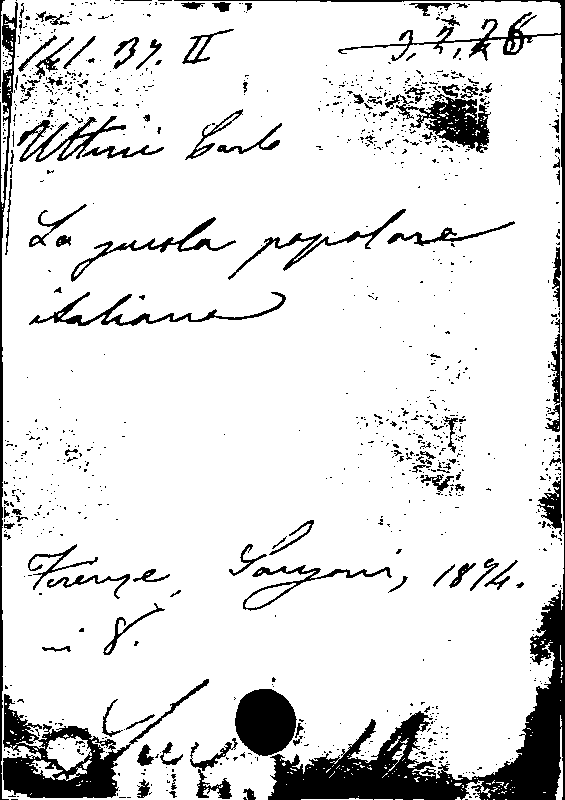 141. 37. II 3.2.28
Uttini Carlo
La scuola popolare
italiana
Firenze, Sansoni, 1894.
in 8.